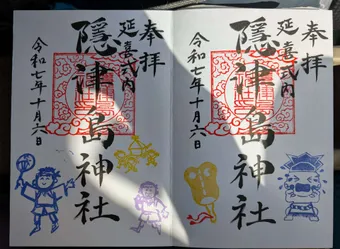 奉拝
延喜式内
隠津島神社
令和七年十月六日
奉拝
延喜式内
隠津島神社
令和七年十月六日